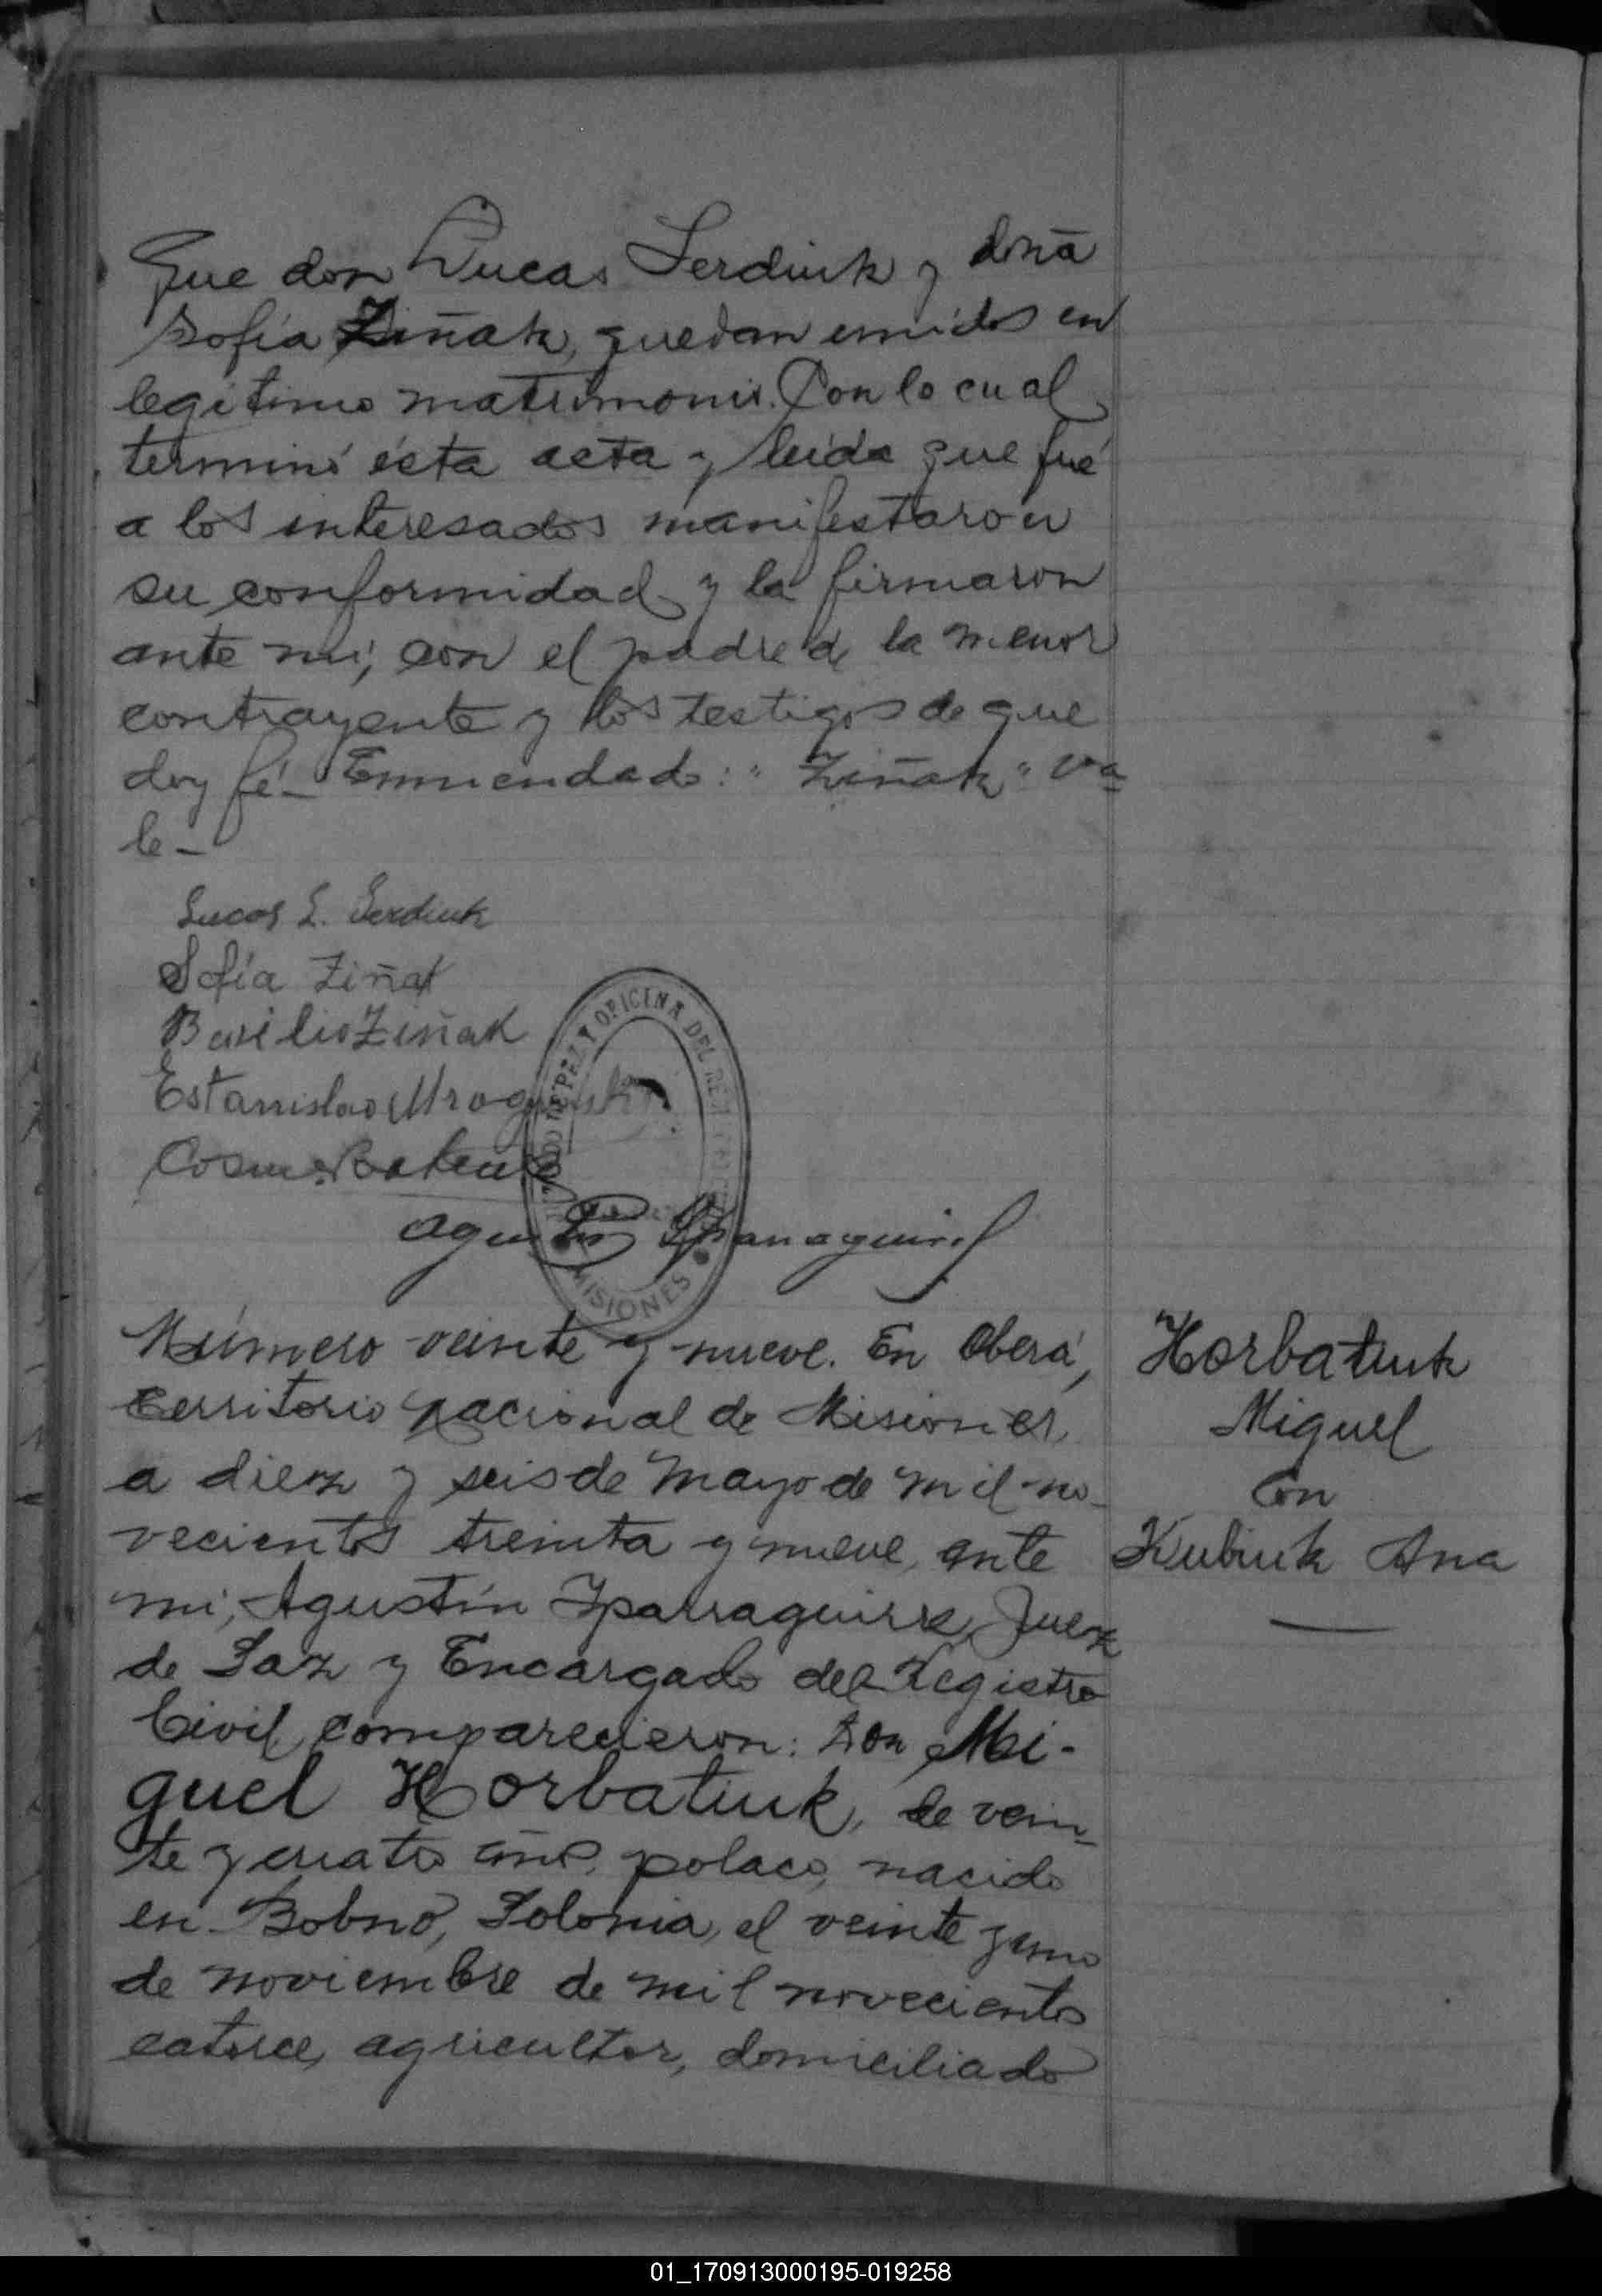 que don Lucas Serdiuk y doña
Sofía Ziñak, quedan unidos en
legítimo matrimonio. Con lo cual
terminó ésta acta y leída que fué
a los interesados manifestaron
su conformidad y la firmaron
ante mi, con el padre de la menor
contrayente y los testigos de que
doy fé._ Enmendado: "Ziñak" va-
le_
Lucas S. Serdiuk
Sofía Ziñak
Basilio Ziñak
Estanislao
Cosme
OFICINA DEL
MISIONES
Agustín Yparraguirre
Número veinte y nueve. En Oberá,
territorio nacional de Misiones,
a diez y seis de Mayo de mil no-
vecientos treinta y nueve, ante
mi, Agustín Yparraguirre, Juez
de Paz y Encargado del Registro
Civil, comparecieron: Don Mi-
guel Horbatiuk, de vein-
te y cuatro años, polaco, nacido
en Bobno, Polonia, el veinte y uno
de noviembre de mil novecientos
catorce, agricultor, domiciliado
Horbatiuk
Miguel
con
Kubiuk Ana
01_170913000195-019258